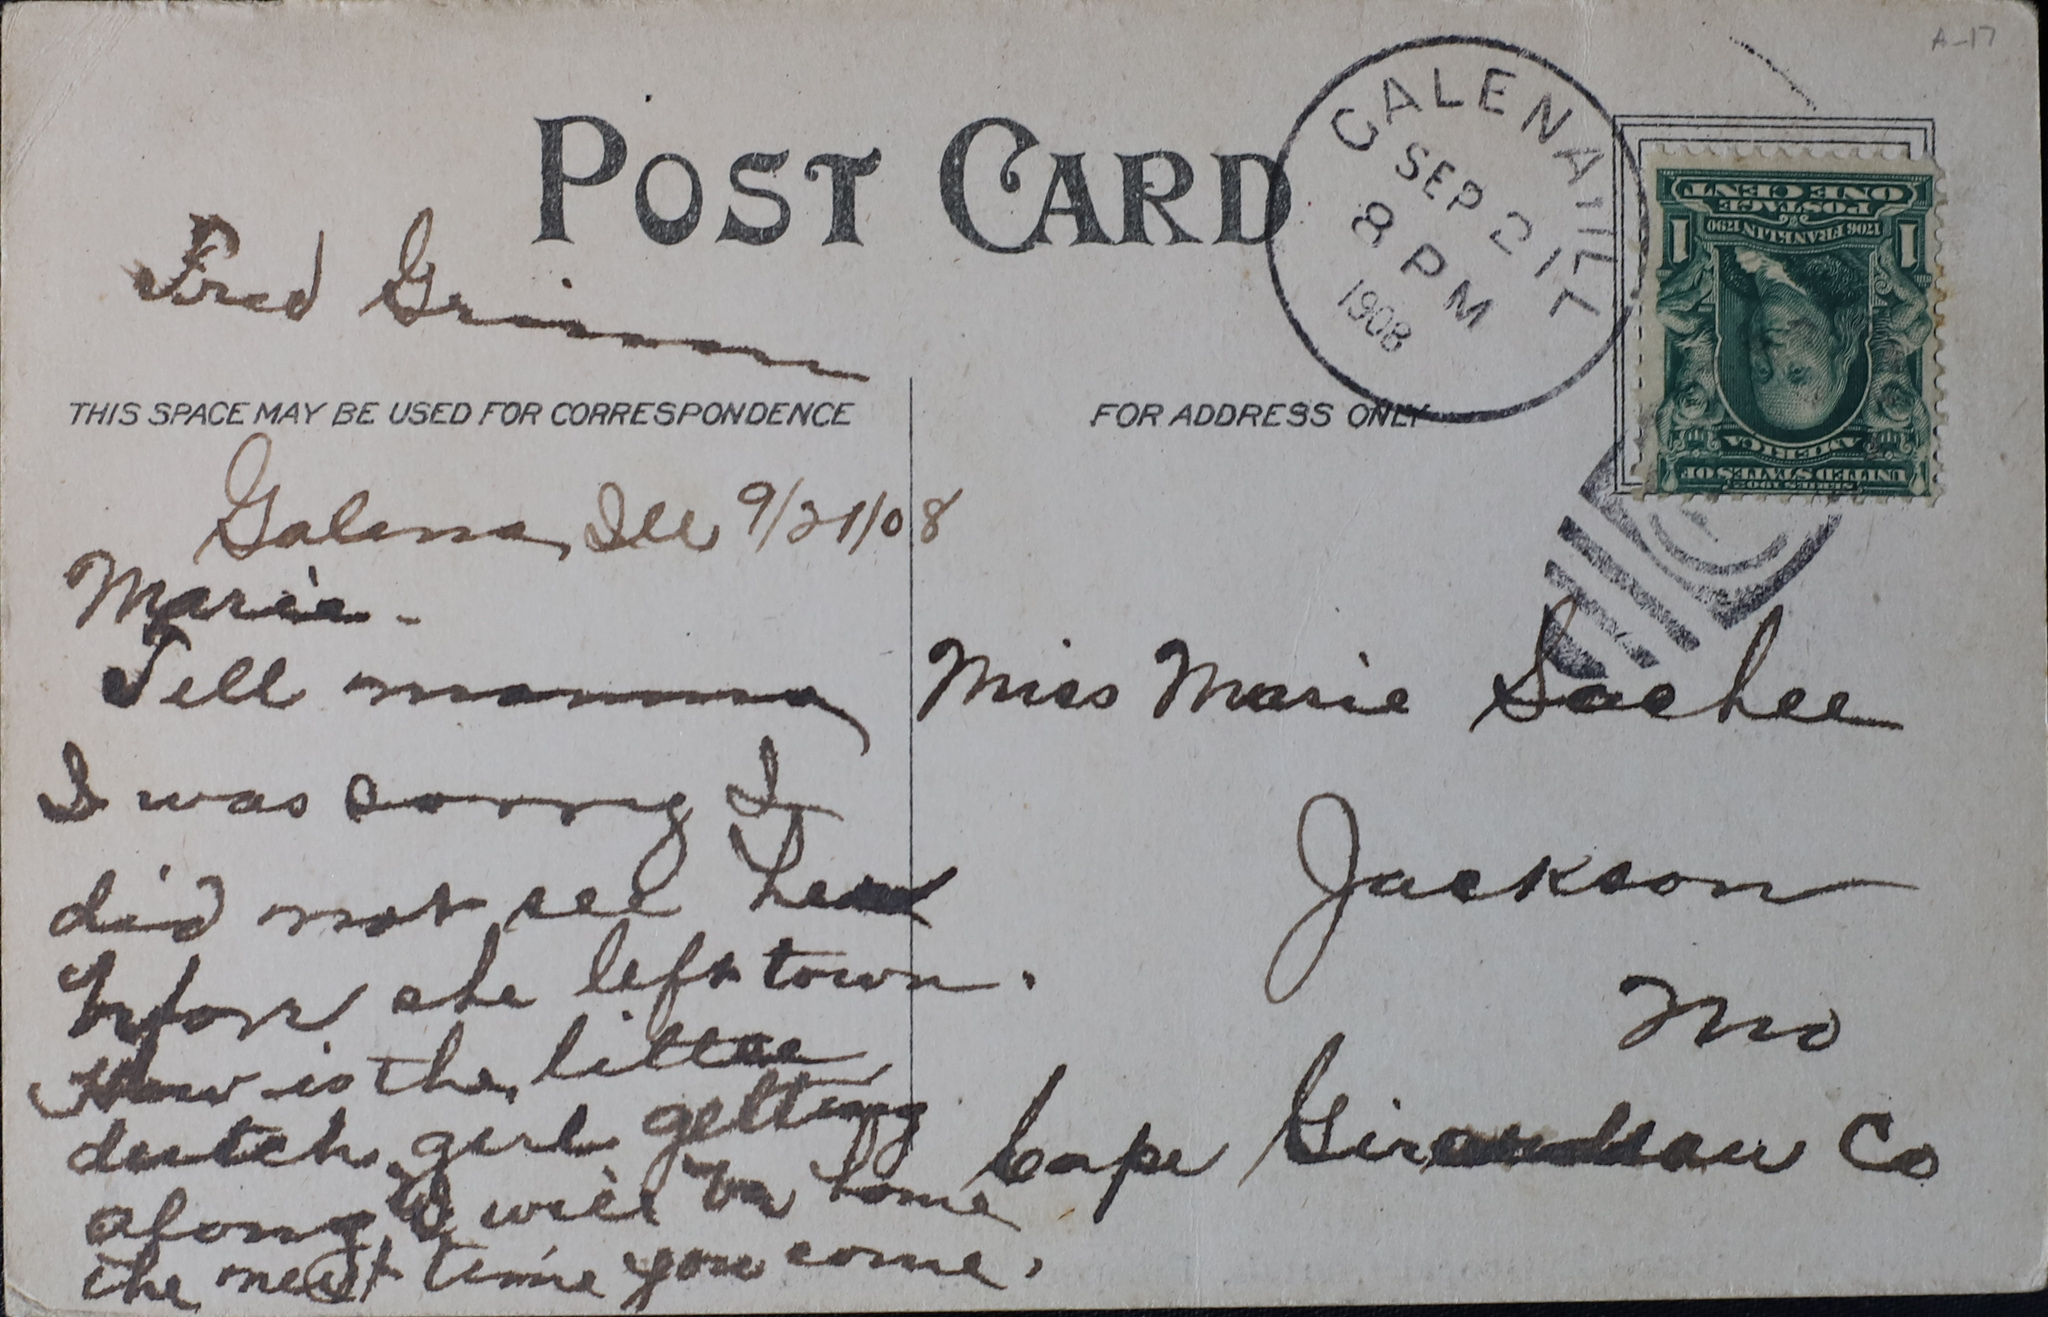 A-17
POST CARD
GALENA, ILL
SEP 21
8 PM
1908
ONE CENT
POSTAGE
1706 FRANKLIN 1790
1 1
AMERICA
UNITED STATES OF
SERIES 1902
Fred Grimm
THIS SPACE MAY BE USED FOR CORRESPONDENCE
FOR ADDRESS ONLY
Galena, Ill 9/21/08
Marie -
Tell mamma
I was sorry I
did not see her
befor she left town.
How is the little
dutch girl getting
along I will be home
the next time you come.
Miss Marie Sachee
Jackson
Mo
Cape Girardeau Co